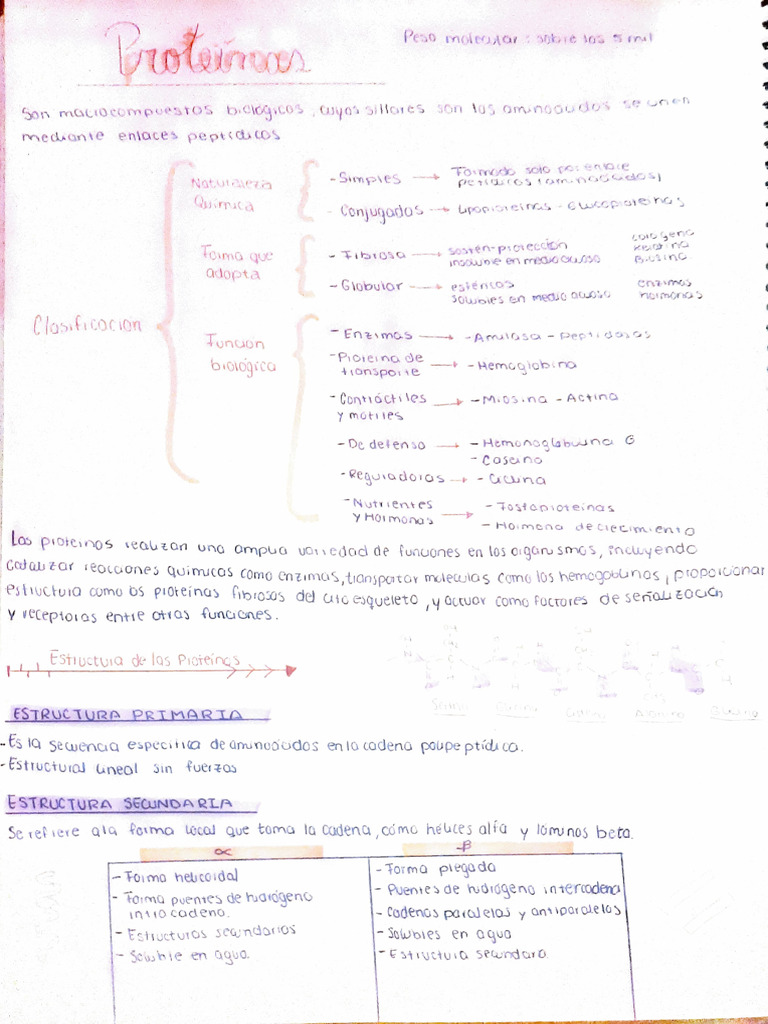 Proteínas
Peso molecular: sobre los 5 mil
Son macrocompuestos biológicos, cuyos sillares son los aminoácidos se unen
mediante enlaces peptídicos
Clasificación
Naturaleza
Química
- Simples → Formado solo por enlace
peptídicos (aminoácidos)
- Conjugadas → Lipoproteínas - Glucoproteínas
Forma que
adopta
- Fibrosa → sosten-protección
insoluble en medio acuoso
colageno
Keratina
- Globular → esféricos
solubles en medio acuoso
enzimas
hormonas
Funcion
biológica
- Enzimas → - Amilasa - Peptidasas
- Proteina de
transporte → - Hemoglobina
- Contráctiles
y motiles → - Miosina - Actina
- De defensa → - Hemonoglobulina G
- Caseina
- Reguladoras →
- Nutrientes
y Hormonas → - Fosfoproteínas
- Hormona de crecimiento
Las proteinas realizan una amplia variedad de funciones en los organismos, incluyendo
catalizar reacciones químicas como enzimas, transportar moleculas como los hemogobinas, proporcionar
estructura como os proteínas fibrosas del citoesqueleto, y actuar como factores de señalización
y receptoras entre otras funciones.
Estructura de las Proteínas
Serina Alanina
ESTRUCTURA PRIMARIA
- Es la secuencia especifica de aminoácidos en la cadena polipeptídica.
- Estructural lineal sin fuerzas
ESTRUCTURA SECUNDARIA
Se refiere a la forma local que toma la cadena, cómo hélices alfa y láminas beta.
α
- Forma helicoidal
- Forma puentes de hidrógeno
intra cadena.
- Estructuras secundarias
- Soluble en agua.
β
- Forma plegada
- Puentes de hidrógeno intercadena
- Cadenas paralelas y antiparalelas
- Solubles en agua
- Estructura secundara